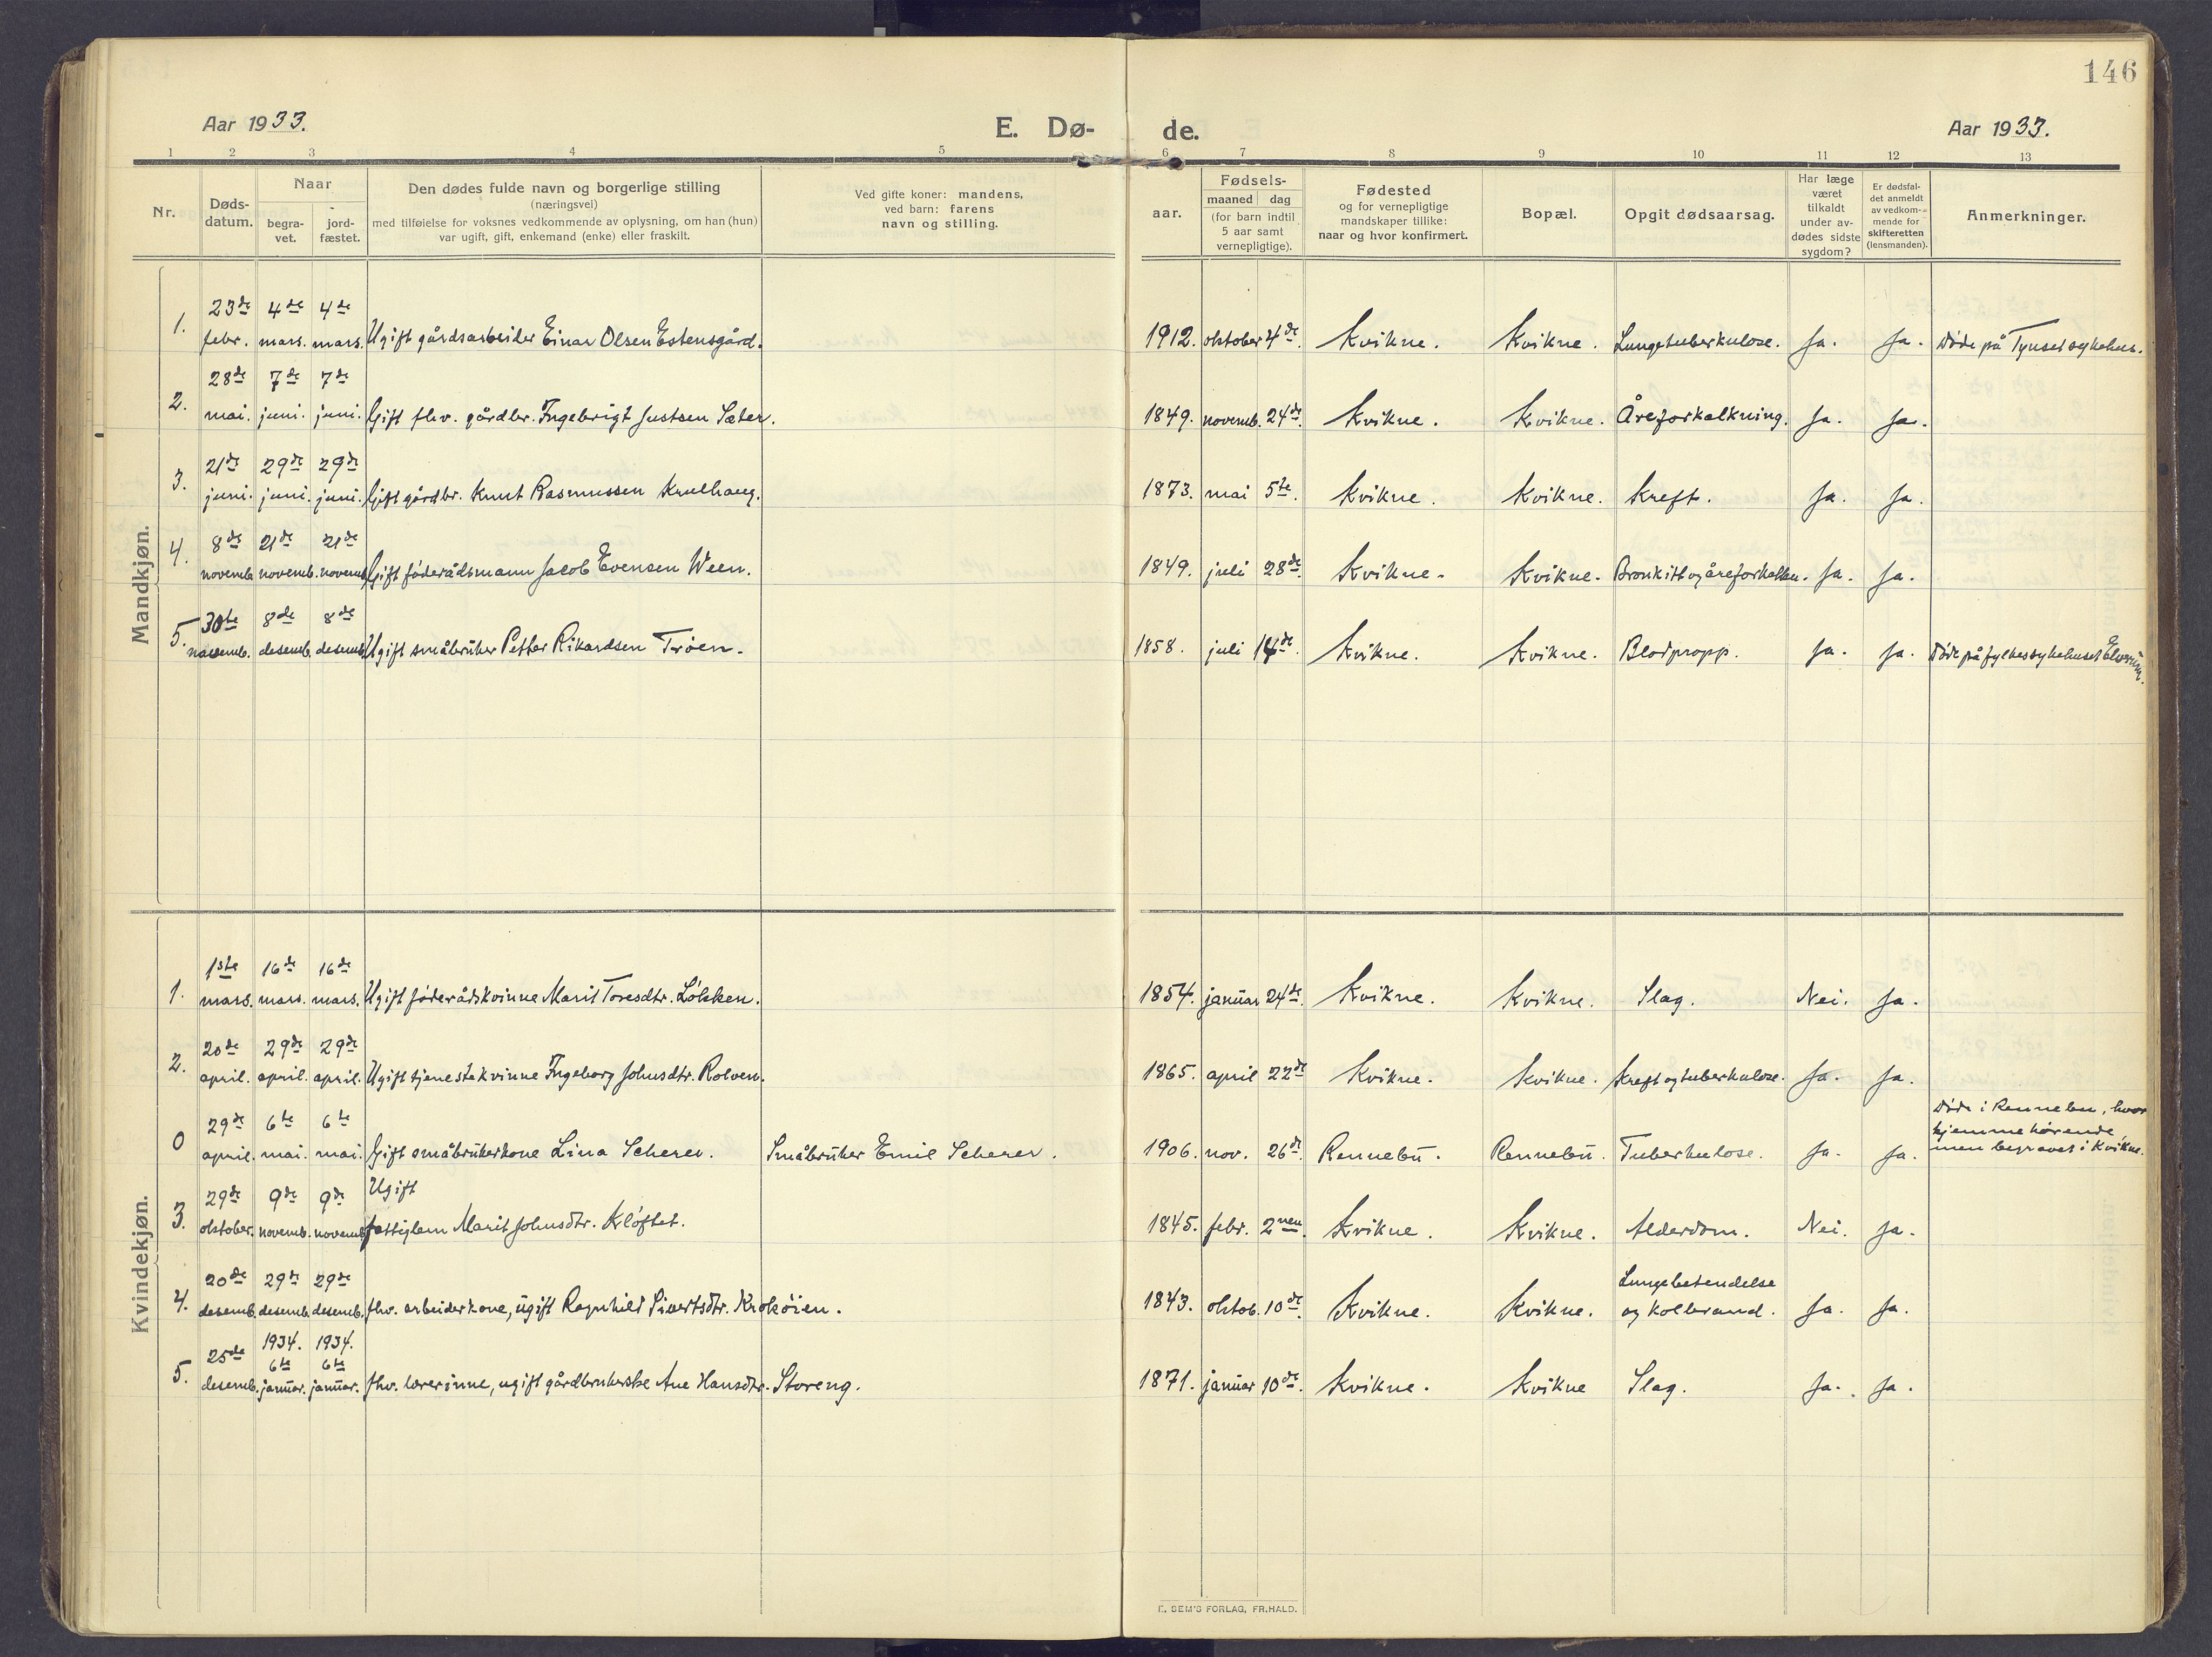 146
Aar 1933.
E. Dø-
de.
Aar 1933.
1 2 3 4 5 6 7 8 9 10 11 12 13
Nr.
Døds-
datum.
Naar
begra-
vet.
jord-
fæstet.
Den dødes fulde navn og borgerlige stilling
(næringsvei)
med tilføielse for voksnes vedkommende av oplysning, om han (hun)
var ugift, gift, enkemand (enke) eller fraskilt.
Ved gifte koner: mandens,
ved barn: farens
navn og stilling.
Fødsels-
aar.
maaned dag
(for barn indtil
5 aar samt
vernepligtige).
Fødested
og for vernepligtige
mandskaper tillike:
naar og hvor konfirmert.
Bopæl.
Opgit dødsaarsag.
Har læge
været
tilkaldt
under av-
dødes sidste
sygdom?
Er dødsfal-
det anmeldt
av vedkom-
mende for
skifteretten
(lensmanden).
Anmerkninger.
Mandkjøn.
1. 23de 4de 4de
febr. mars. mars. Ugift gårdsarbeider Einar Olsen Estensgård. 1912. oktober 4de. Kvikne. Kvikne. Lungetuberkulose. Ja. Ja. Døde på Tynset sykehus.
2. 28de 7de 7de
mai. juni. juni. Gift fhv. gårdbr. Ingebrigt Justsen Sæter. 1849. novemb. 24de. Kvikne. Kvikne. Åreforkalkning. Ja. Ja.
3. 21de 29de 29de
juni. juni. juni. Gift gårdbr. Knut Rasmussen Krulhaug. 1873. mai 5te. Kvikne. Kvikne. Kreft. Ja. Ja.
4. 8de 21de 21de
novemb. novemb. novemb. Gift føderådsmann Jacob Evensen Ween. 1849. juli 28de. Kvikne. Kvikne. Bronkitt og åreforkalkn. Ja. Ja.
5. 30te 8de 8de
novemb. desemb. desemb. Ugift småbruker Petter Rikardsen Trøen. 1858. juli de. Kvikne. Kvikne. Blodpropp. Ja. Ja. Døde på fylkessykehuset Elverum.
Kvindekjøn.
1. 1ste 16de 16de
mars. mars. mars. Ugift føderådskvinne Marit Toresdtr. Løkken. 1854. januar 24de. Kvikne. Kvikne. Slag. Nei. Ja.
2. 20de 29de 29de
april. april. april. Ugift tjenestekvinne Ingeborg Johnsdtr. Rolven. 1865. april 22de Kvikne. Kvikne. Kreft og tuberkulose. Ja. Ja.
0 29de 6te 6te
april. mai. mai. Gift småbrukerkone Lina Scherer. Småbruker Emil Scherer. 1906. nov. 26de. Rennebu. Rennebu. Tuberkulose. Ja. Ja. Døde i Rennebu, hvor
hjemmehørende
men begravet i Kvikne.
3. 29de 9de 9de Ugift
oktober. novemb. novemb. fattiglem Marit Johnsdtr. Kløftet. 1845. febr. 2nen. Kvikne. Kvikne. Alderdom. Nei. Ja.
4. 20de 29de 29de Lungebetendelse
desemb. desemb. desemb. fhv. arbeiderkone, ugift Ragnhild Sivertsdtr. Krokøien. 1843. oktob. 10de. Kvikne. Kvikne. og kolbrand. Ja. Ja.
1934. 1934.
5. 25de 6te 6te
desemb. januar. januar. fhv. lærerinne, ugift gårdbrukerske Ane Hansdtr. Storeng. 1871. januar 10de. Kvikne. Kvikne Slag. Ja. Ja.
E. SEM'S FORLAG, FR.HALD.